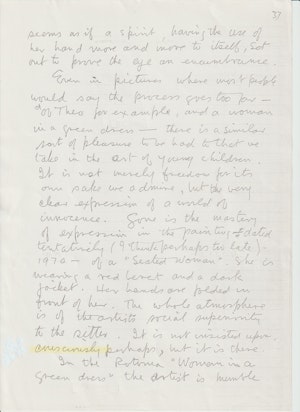 37
seems as if a spirit, having the use of
her hand more and more to itself, set
out to prove the eye an encumbrance.
Even in pictures where most people
would say the process goes too far —
of Theo for example, and a woman
in a green dress — there is a similar
sort of pleasure to be had to that we
take in the art of young children.
It is not merely freedom for its
own sake we admire, but the very
clear expression of a world of
innocence. Gone is the mastery
of expression in the painting — dated
tentatively (I think perhaps too late) -
1970 — of a "Seated Woman". She is
wearing a red beret and a dark
jacket. Her hands are folded in
front of her. The whole atmosphere
is of the artist's social superiority
to the sitter. It is not insisted upon,
consciously perhaps, but it is there
In the "Woman in a
green dress" the artist is humble